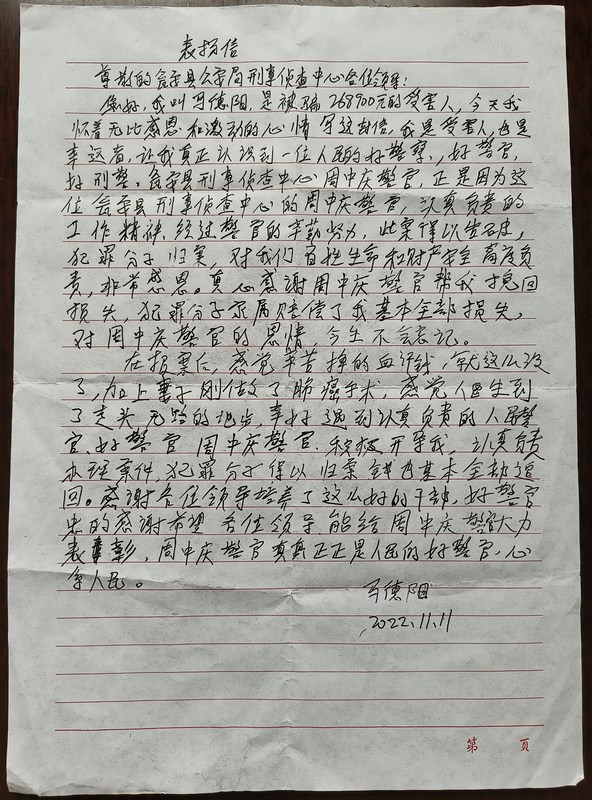 表扬信
尊敬的翁牛县公安局刑事侦查中心各位领导:
您好,我叫马德阳,是被骗268700元的受害人,今天我
怀着无比感恩和激动的心情写这封信。我是受害人,也是
幸运者,让我真正认识到一位人民的好警察,好警官,
好刑警。县刑事侦查中心周中庆警官,正是因为这
位县刑事侦查中心的周中庆警官,认真负责的
工作精神,经过警官的辛勤努力,此案得以告破,
犯罪分子归案,对我们百姓生命和财产安全高度负
责,非常感恩。真心感谢周中庆警官帮我挽回
损失,犯罪分子家属赔偿了我基本全部损失,
对周中庆警官的恩情,今生不会忘记。
在报案后,感觉辛苦挣的血汗钱,就这么没
了,加上妻子刚做了肺癌手术,感觉人生到
了走头无路的地步,幸好遇到认真负责的人民警
官,好警官周中庆警官,积极开导我,认真负责
办理案件,犯罪分子得以归案,钱也基本全部追
回。感谢各位领导培养了这么好的干部,好警官
的感谢希望各位领导能给周中庆警官大力
表彰,周中庆警官真真正正是人民的好警官,心
系人民。
马德阳
2022.11.11
第 页